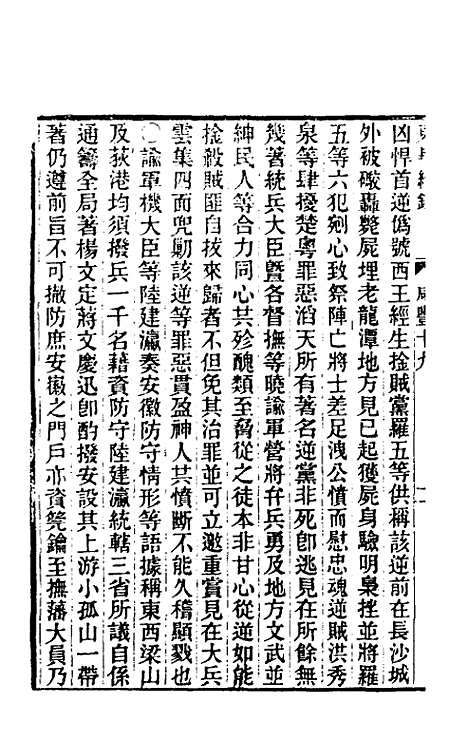 東華續錄 咸豐十九
凶悍首逆僞號西王經生擒賊黨羅五等供稱該逆前在長沙城
外被礮轟斃屍埋老龍潭地方見已起獲屍身驗明梟挫並將羅
五等六犯剜心致祭陣亡將士差足洩公憤而慰忠魂逆賊洪秀
泉等肆擾楚粵罪惡滔天所有著名逆黨非死卽逃見在所餘無
幾著統兵大臣曁各督撫等曉諭軍營將弁兵勇及地方文武並
紳民人等合力同心共殄醜類至脅從之徒本非甘心從逆如能
擒殺賊匪自拔來歸者不但免其治罪並可立邀重賞見在大兵
雲集四面兜勦該逆等罪惡貫盈神人其憤斷不能久稽顯戮也
〇諭軍機大臣等陸建瀛奏安徽防守情形等語據稱東西梁山
及荻港均須撥兵一千名藉資防守陸建瀛統轄三省所議自係
通籌全局著楊文定蔣文慶迅卽酌撥安設其上游小孤山一帶
著仍遵前旨不可撤防庶安徽之門戶亦資筦鑰至撫藩大員乃